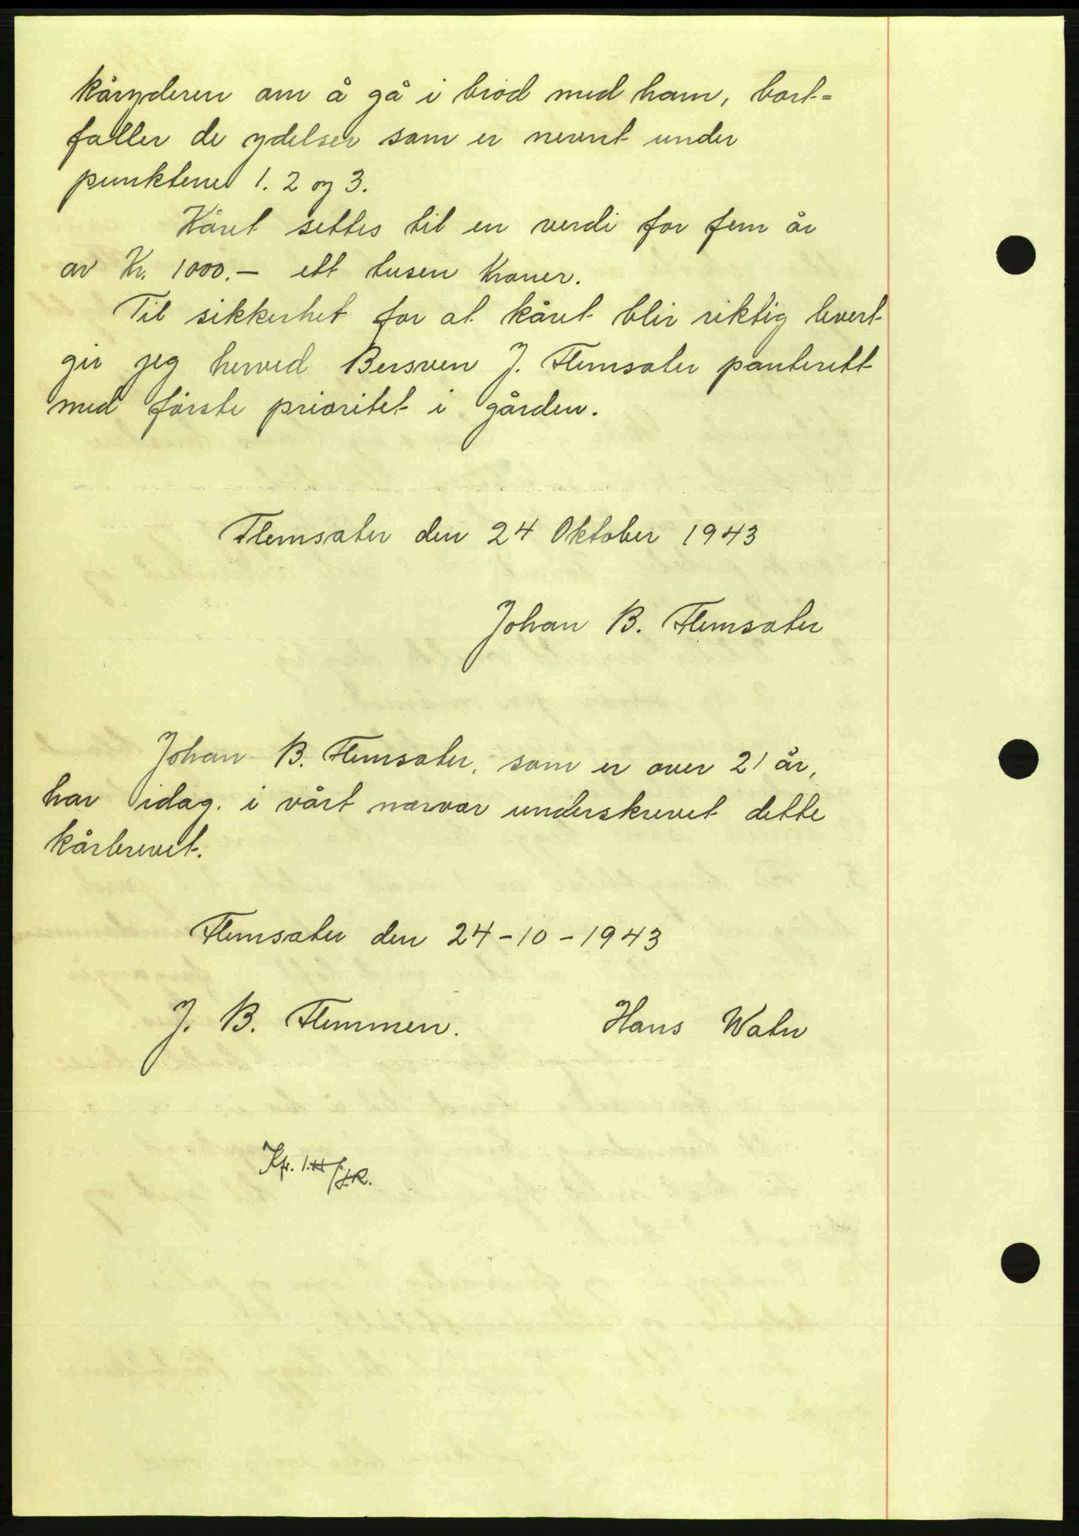 kåryderen om å gå i brød med ham, bort-
faller de ydelser som er nevnt under
punktene 1. 2 og 3.
Kåret settes til en verdi for fem år
av Kr. 1000.- ett tusen Kroner.
Til sikkerhet for at kåret blir riktig levert
gir jeg herved Bersven J. Flemsæter panterett
med første prioritet i gården.
Flemsæter den 24 Oktober 1943
Johan B. Flemsæter
Johan B. Flemsæter, som er over 21 år,
har idag. i vårt nærvær underskrevet dette
kårbrevet.
Flemsæter den 24-10-1943
J. B. Flemmen. Hans Watn
Kfr.